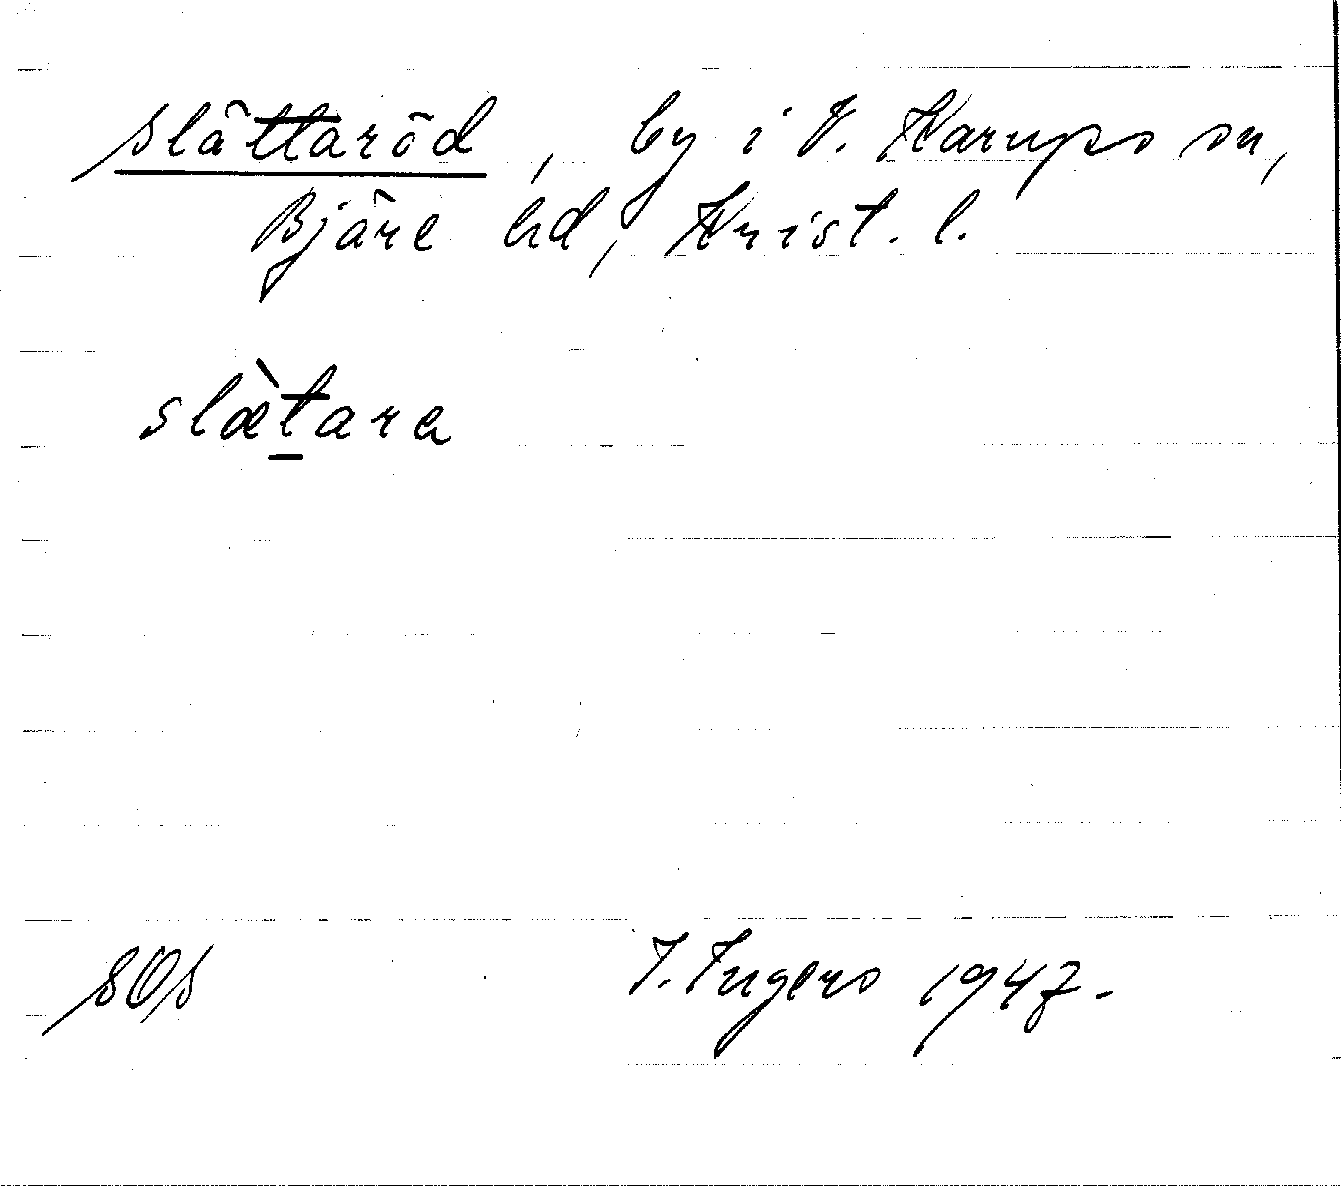 Slättaröd, by i V. Karups sn,
Bjäre hd, Krist. l.
slæ̀t̲ara
SOS
I. Ingers 1947.